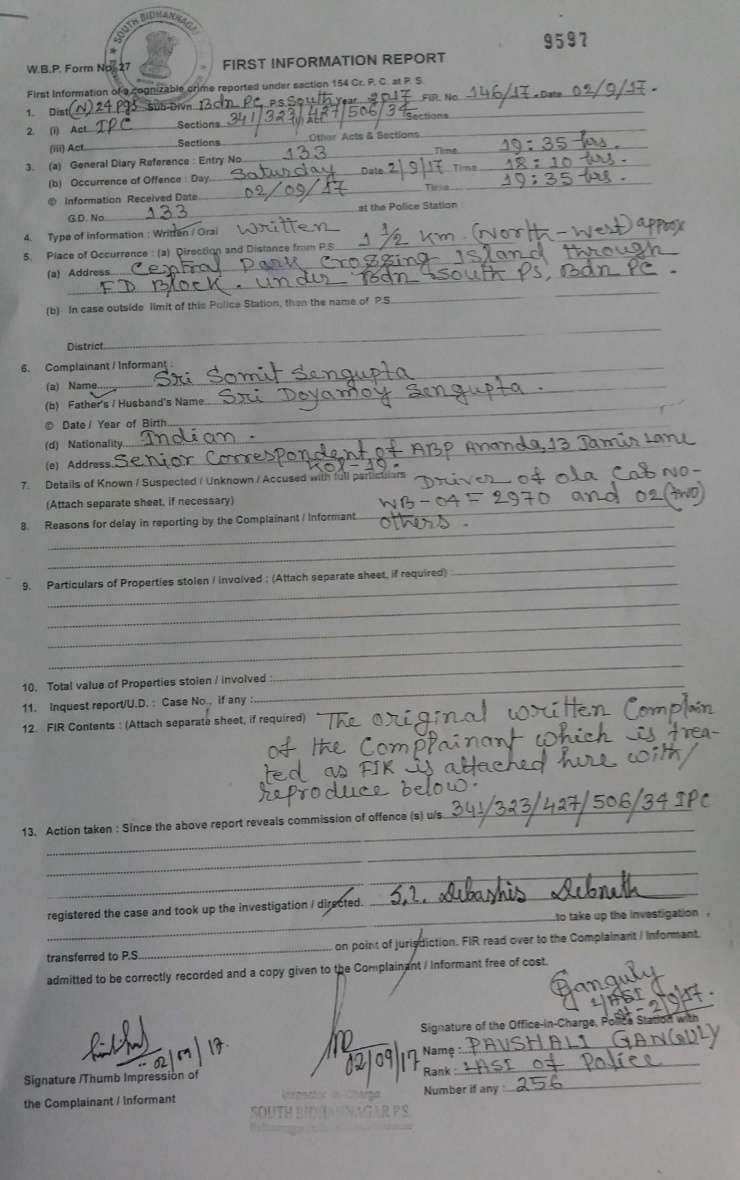 SOUTH BIDHANNAGAR
9597
W.B.P. Form No. 27
FIRST INFORMATION REPORT
First Information of a cognizable crime reported under section 154 Cr. P. C. at P. S.
1. Dist (N) 24 Pgs Sub-Divn. Bdn PC P.S South Year 2017 FIR. No. 146/17. Date 02/9/17.
2. (i) Act IPC Sections 341/323/427/506/34 Sections
(iii) Act Sections Other Acts & Sections
3. (a) General Diary Reference : Entry No. 133 Time 19:35 hrs.
(b) Occurrence of Offence : Day Saturday Date 2/9/17 Time 18:10 hrs.
© Information Received Date 02/09/17 Time 19:35 hrs.
G.D. No. 133 at the Police Station :
4. Type of information : Written / Oral Written
5. Place of Occurrence : (a) Direction and Distance from P.S. 1 1/2 km. (North-West) approx
(a) Address Central Park Crossing Island through
FD Block. under Bdn South PS, Bdn PC.
(b) In case outside limit of this Police Station, than the name of P.S.
District
6. Complainant / Informant :
(a) Name Sri Somit Sengupta
(b) Father's / Husband's Name Sri Doyamoy Sengupta.
© Date / Year of Birth
(d) Nationality Indian.
(e) Address Senior Correspondent of ABP Ananda, 13 Jamir Lane
Kol-19.
7. Details of Known / Suspected / Unknown / Accused with full particulars Driver of Ola Cab NO-
(Attach separate sheet, if necessary) WB-04F 2970 and 02 (two)
8. Reasons for delay in reporting by the Complainant / Informant others.
9. Particulars of Properties stolen / involved : (Attach separate sheet, if required)
10. Total value of Properties stolen / involved :
11. Inquest report/U.D. : Case No., if any :
12. FIR Contents : (Attach separate sheet, if required) The original written Complain
of the Complainant which is trea-
ted as FIR is attached here with/
reproduce below.
13. Action taken : Since the above report reveals commission of offence (s) u/s. 341/323/427/506/34 IPC
registered the case and took up the investigation / directed. S.I. Debashis Debnath
to take up the investigation
transferred to P.S. on point of jurisdiction. FIR read over to the Complainant / Informant.
admitted to be correctly recorded and a copy given to the Complainant / Informant free of cost.
PGanguly
LASI
dt-2/9/17.
Signature of the Office-in-Charge, Police Station with
02/09/17.
02/09/17
Name : PAUSHALI GANGULY
Signature /Thumb Impression of
Rank : LASI of Police
the Complainant / Informant
Number if any : 256
Inspector-in-Charge
SOUTH BIDHANNAGAR P.S.